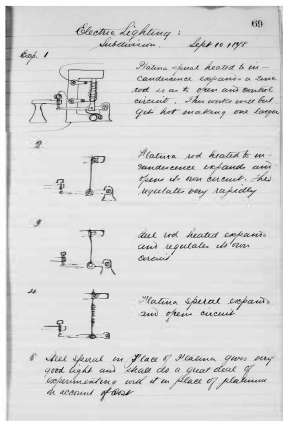 69
Electric Lighting:
Subdivision. Sept 10, 1878
Exp. 1
Platina spiral heated to in-
candescence expands a zinc
rod so as to open and control
circuit. This works well but
get hot making one larger
2
Platina rod heated to in
candescence expands and
opens its own circuit. This
regulates very rapidly
3
Steel rod heated expands
and regulates its own
circuit
4
Platina speral expands
and opens circuit
5 Steel speral in Place of Platina gives very
good light and shall do a great deal of
experimenting with it in place of platinum
on account of cost